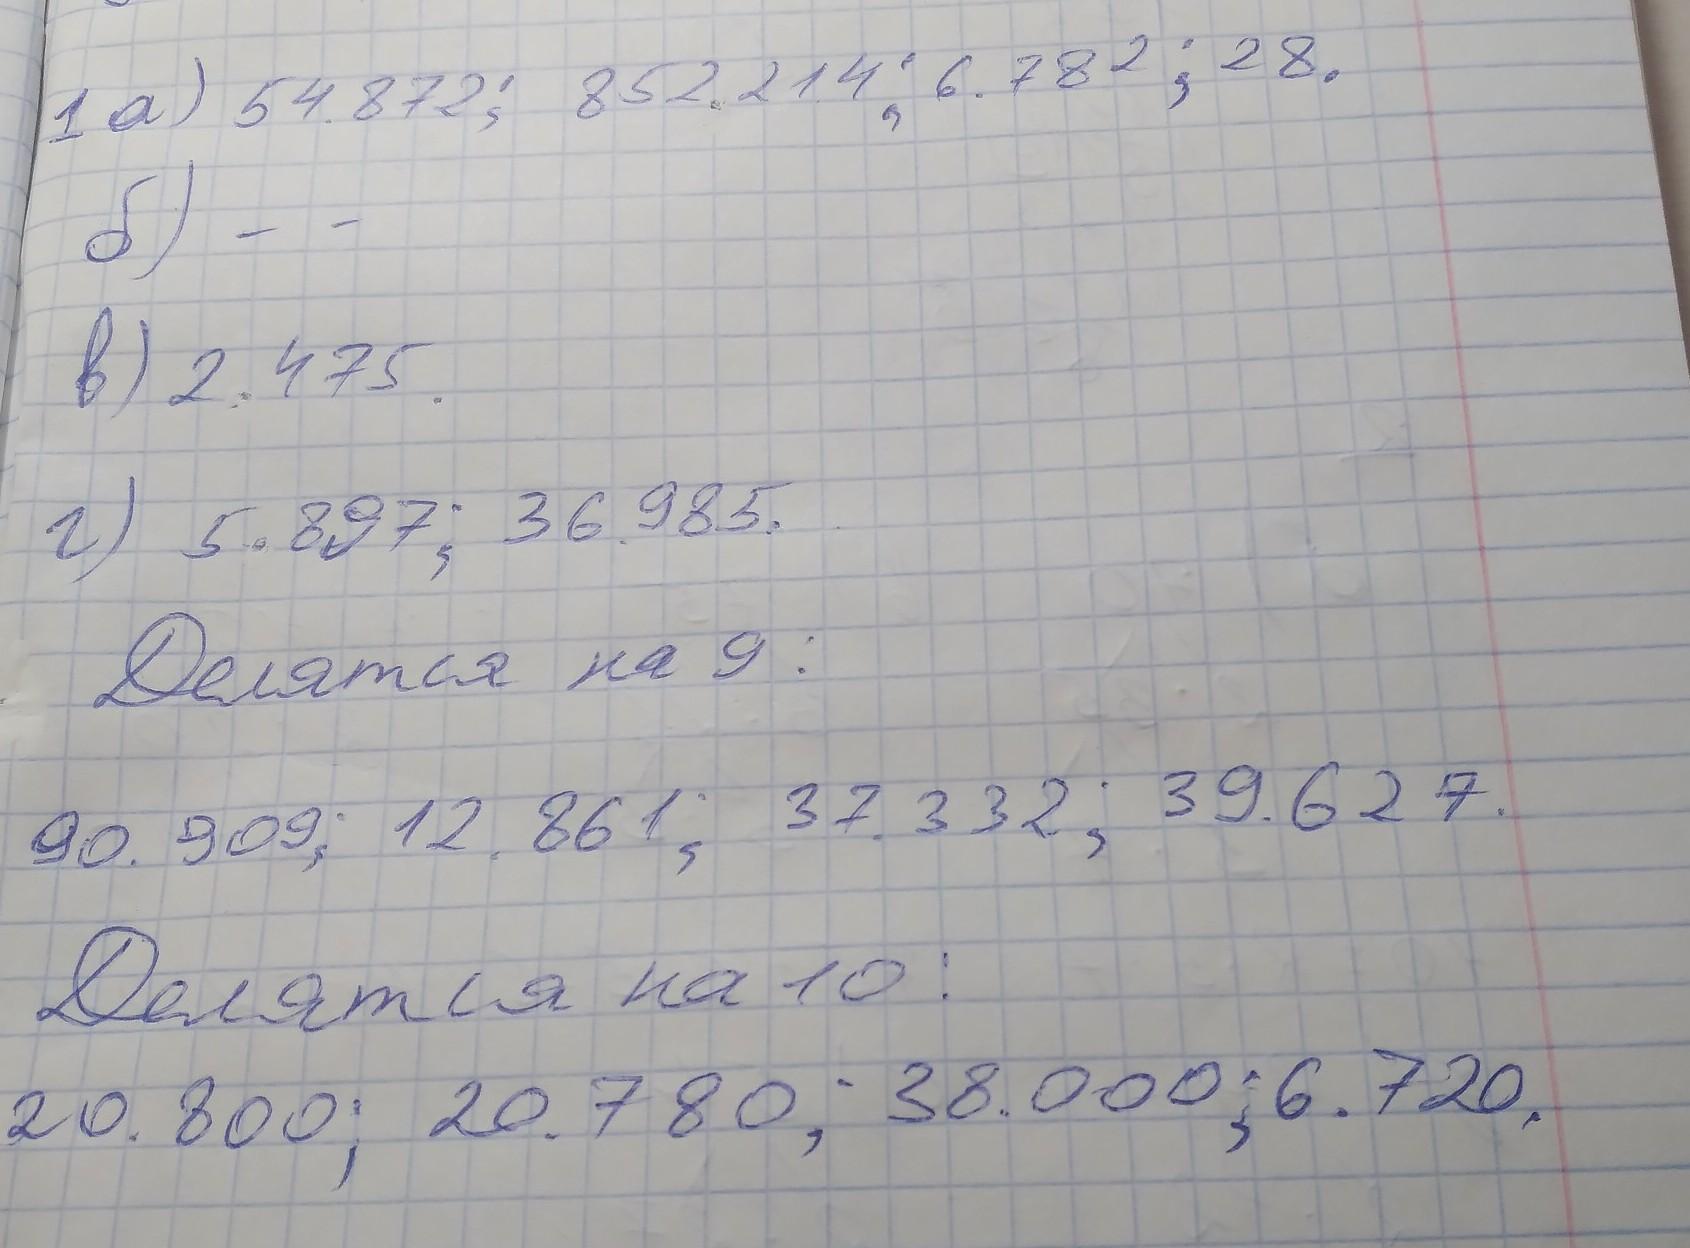 1 а) 54.872; 852.214; 6.782; 28.
б) - -
в) 2.475.
г) 5.897; 36.985.
Делятся на 9:
90.909; 12.861; 37.332; 39.627.
Делятся на 10:
20.800; 20.780; 38.000; 6.720.